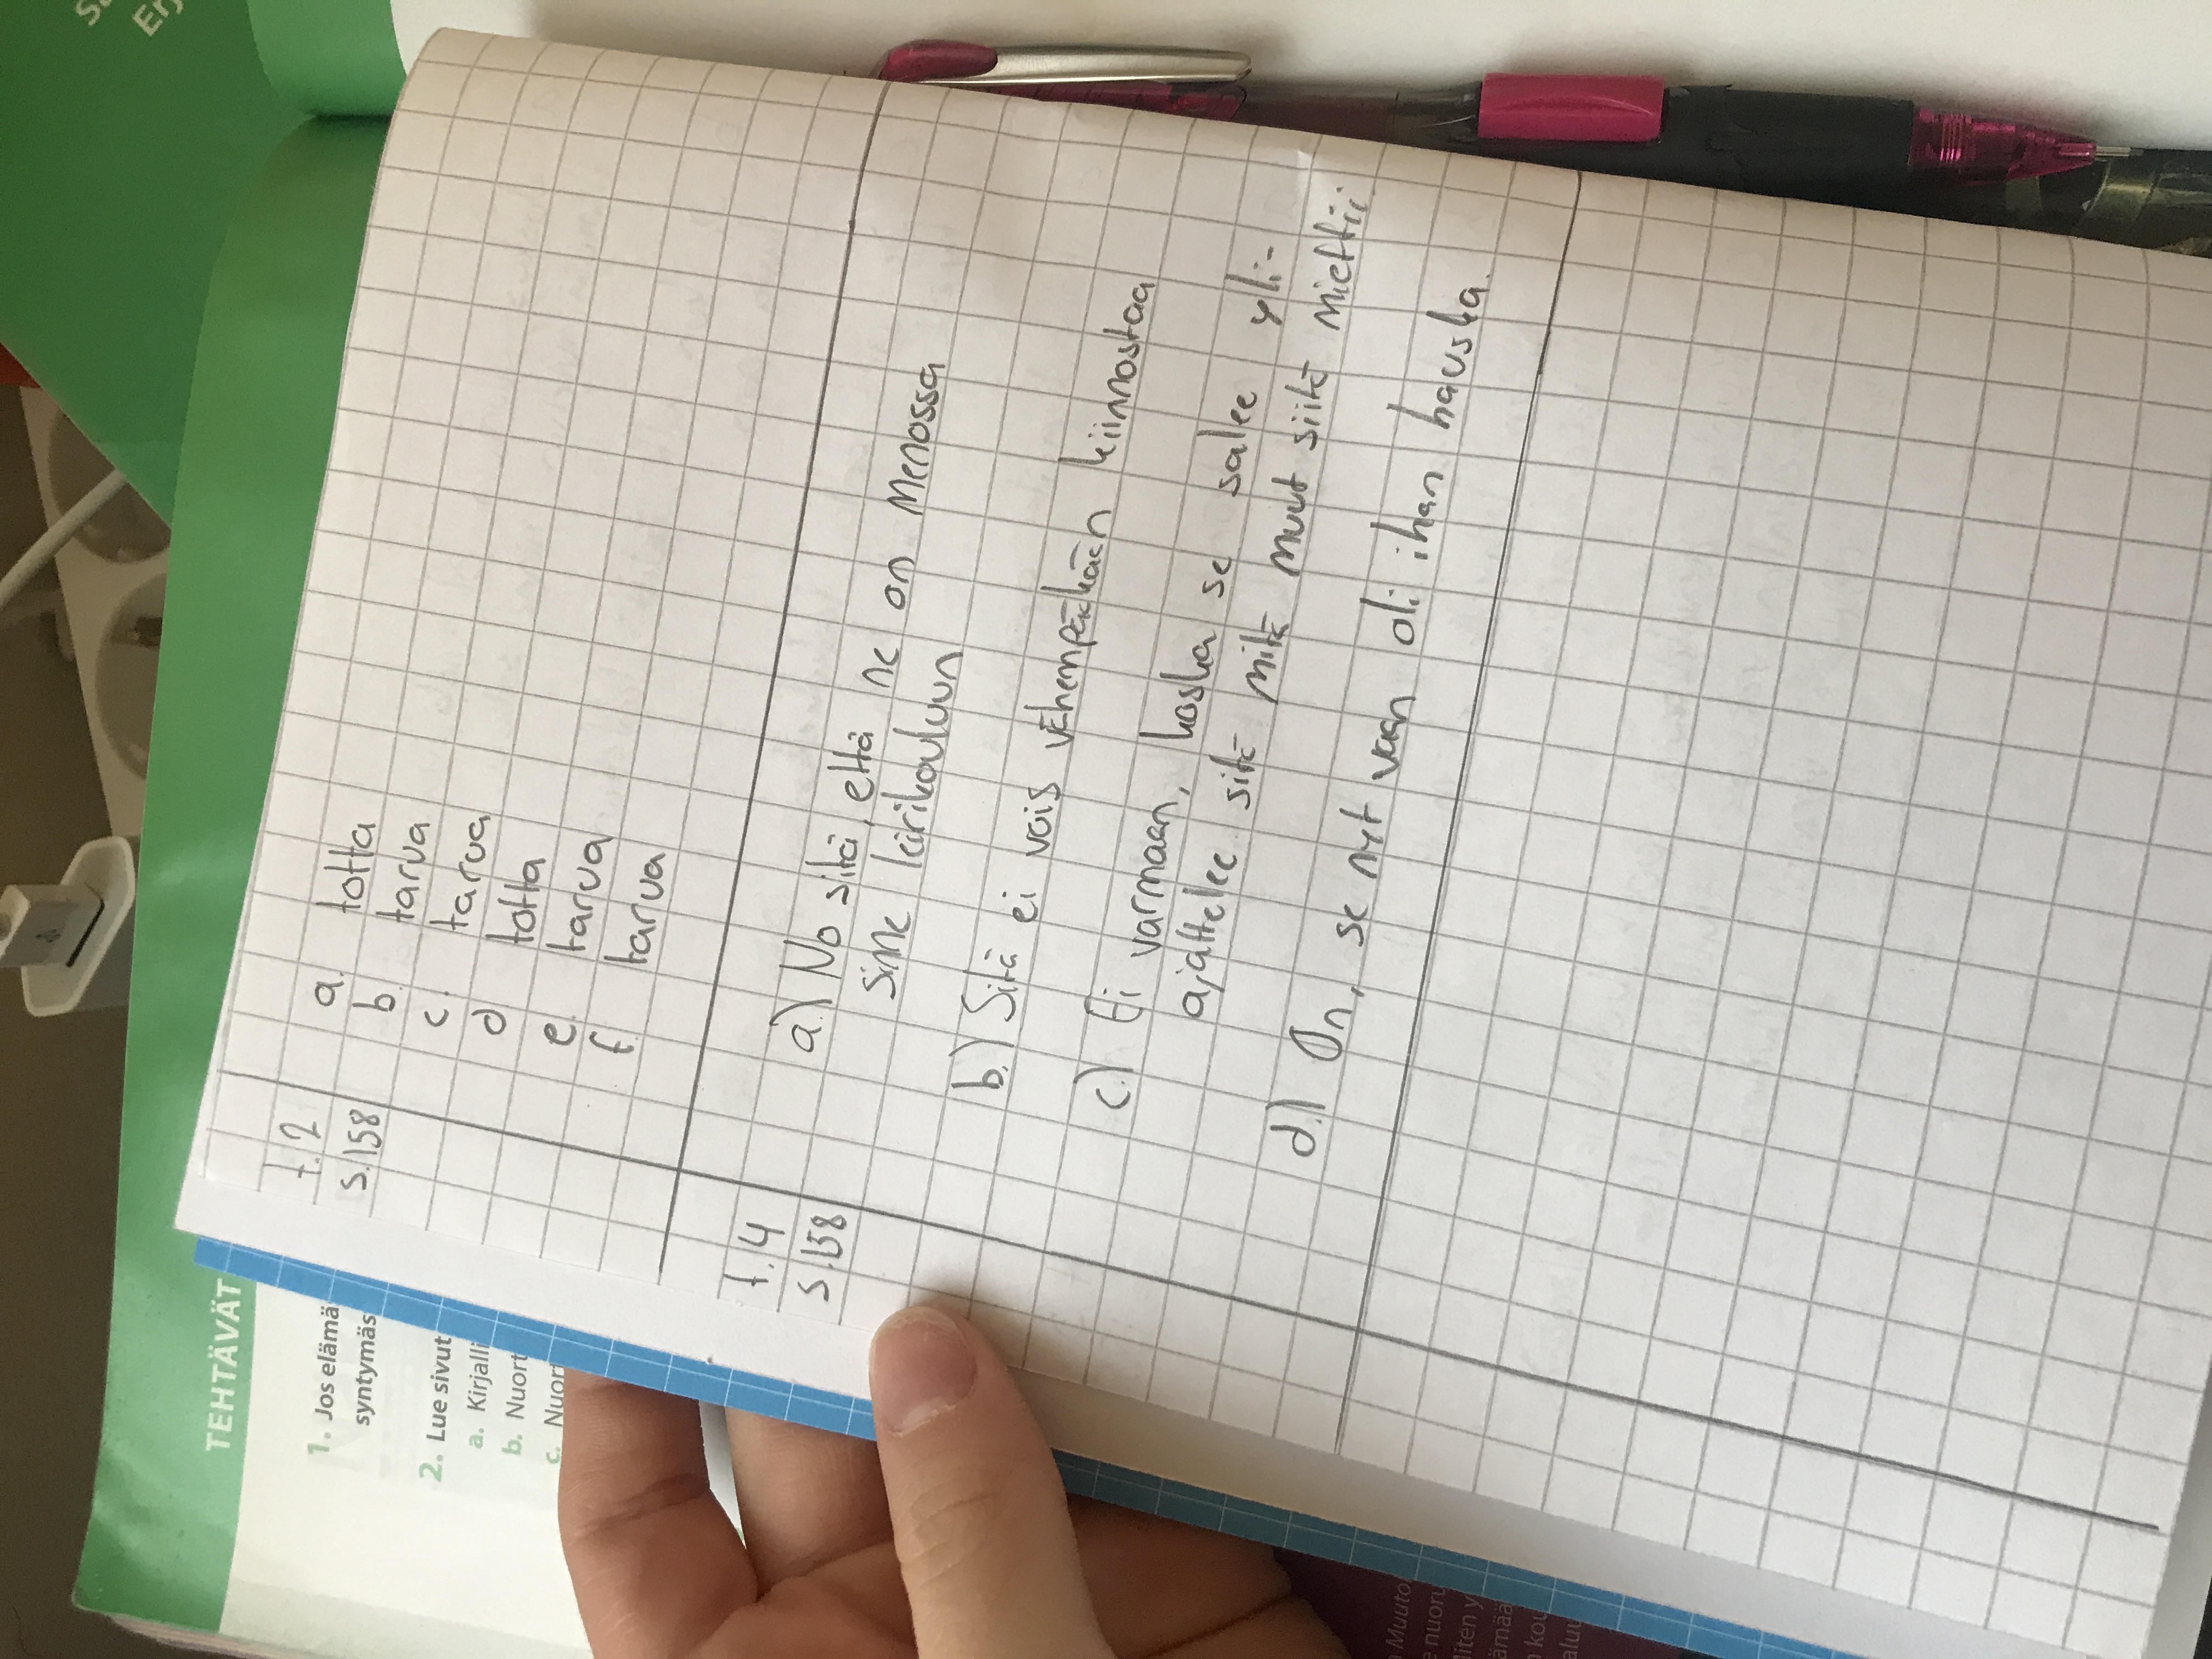 t.2
s.158
a. totta
b. tarva
c. tarva
d totta
e. tarva
f. tarva
t.4
s.158
a.) No sitä, että ne on menossa
sinne leirikouluun
b.) Sitä ei vois vähempäkään kiinnostaa
c.) Ei varmaan, koska se salee yli-
ajattelee sitä mitä muut siitä miettii.
d.) On, se nyt vaan oli ihan hauska.
TEHTÄVÄT
1. Jos elämä
syntymäs
2. Lue sivut
a. Kirjalli
b. Nuort
c. Nuor